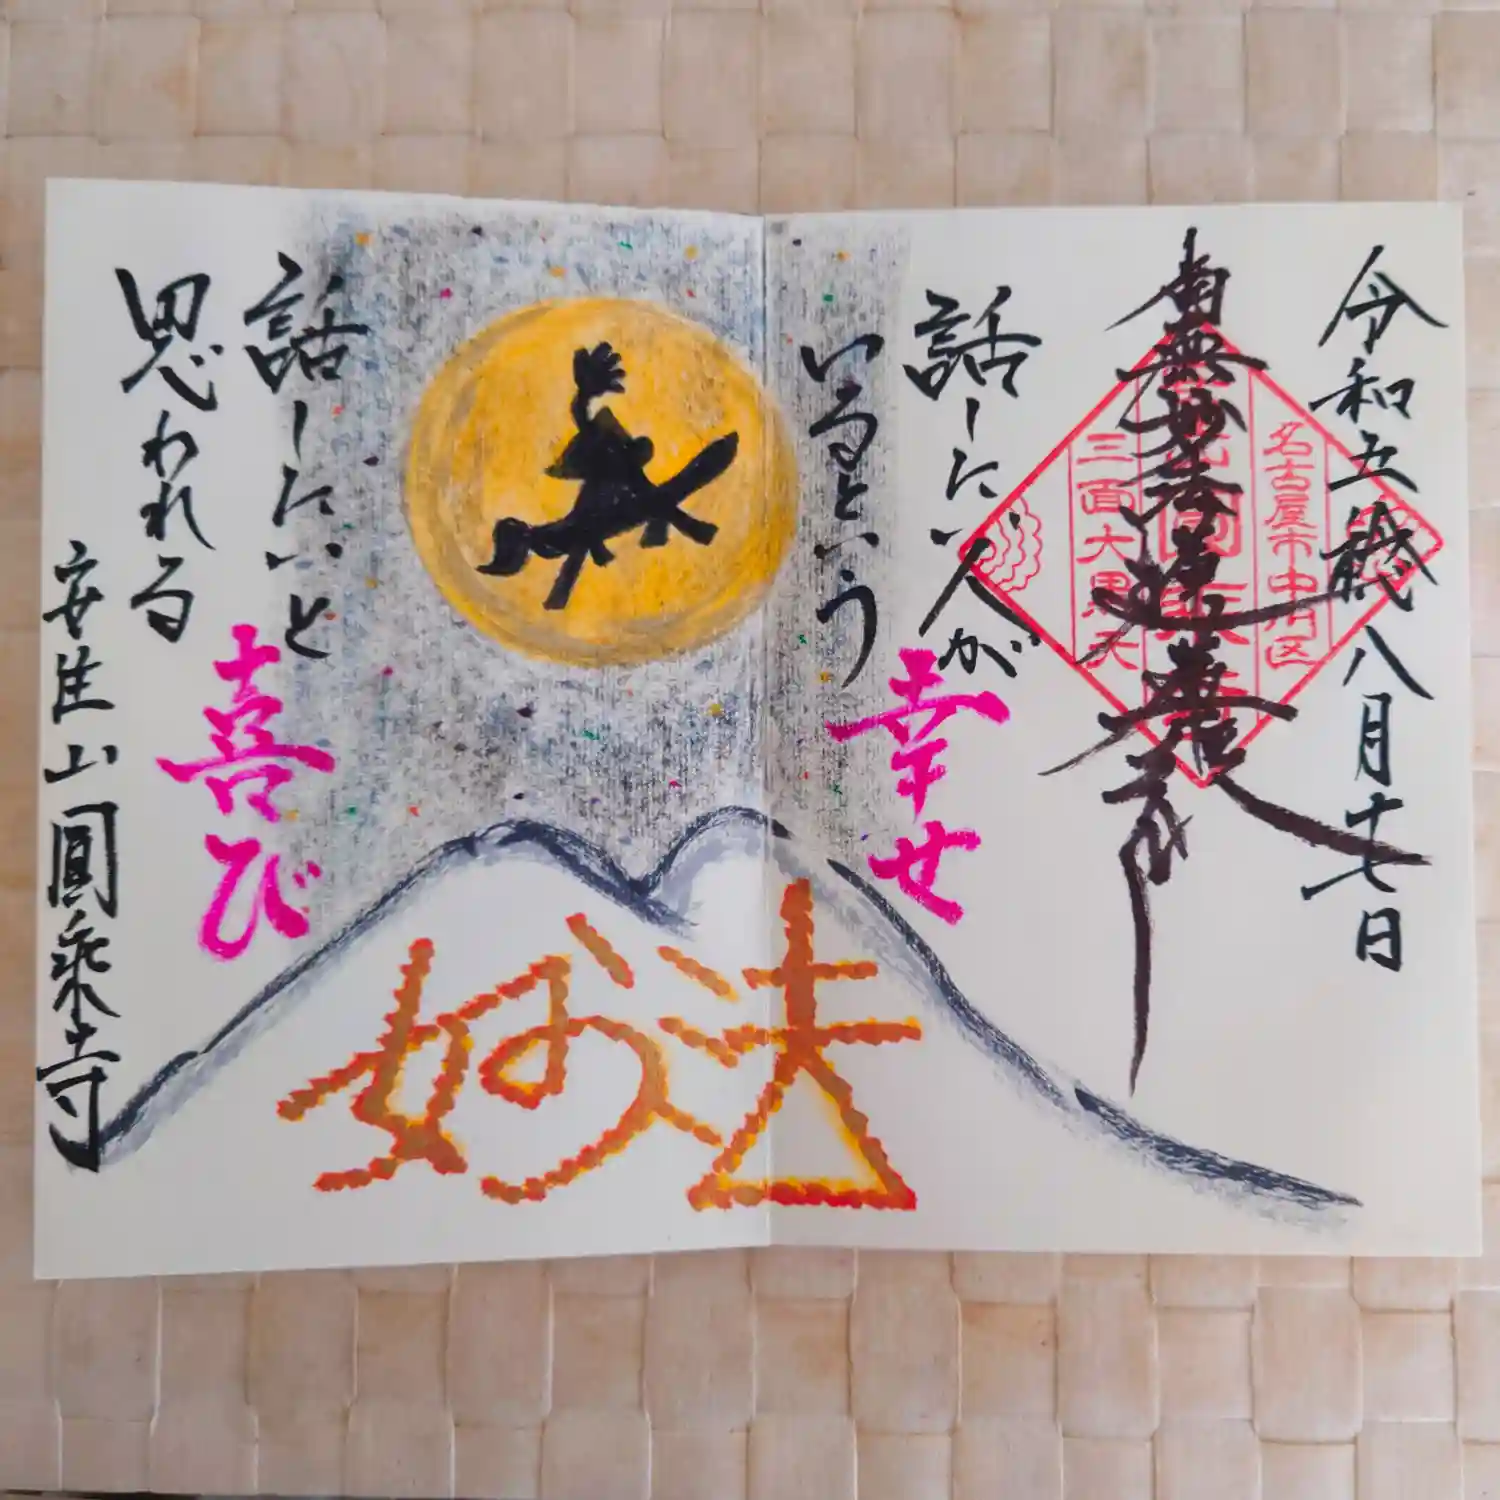 令和五歳八月十七日
南無妙法蓮華経
名古屋市中川区
三面大黒天
話したい人が
いるという
幸せ
妙法
話したいと
思われる
喜び
安住山圓乘寺